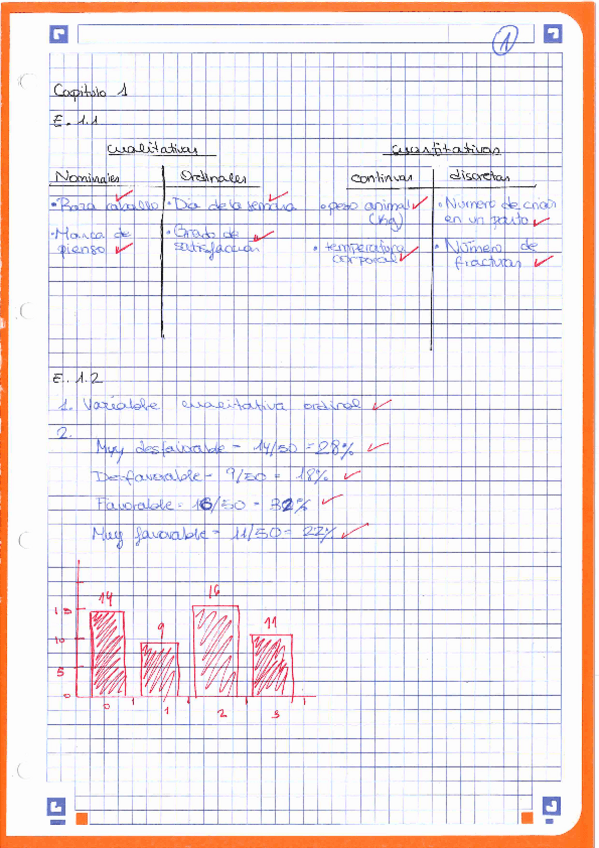 1
Capitulo 1
E. 1.1
cualitativas cuantitativas
Nominales Ordinales continuas discretas
• Raza caballo • Día de la semana • peso animal (kg) • Número de crías en un parto
• Marca de pienso • Grado de satisfacción • temperatura corporal • Número de fracturas
E. 1.2
1. Variable cualitativa ordinal
2.
Muy desfavorable - 14/50 = 28%
Desfavorable - 9/50 = 18%
Favorable = 16/50 - 32%
Muy favorable - 11/50 = 22%
14 9 16 11
15
10
5
0
0 1 2 3